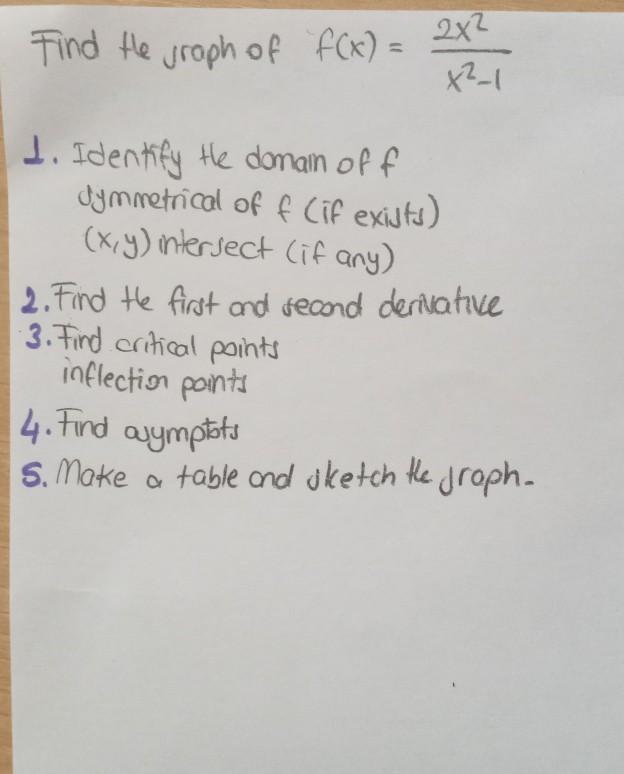 Find the graph of f(x) = 2x²/x²-1
1. Identify the domain of f
symmetrical of f (if exists)
(x,y) intersect (if any)
2. Find the first and second derivative
3. Find critical points
inflection points
4. Find asymptots
5. Make a table and sketch the graph.